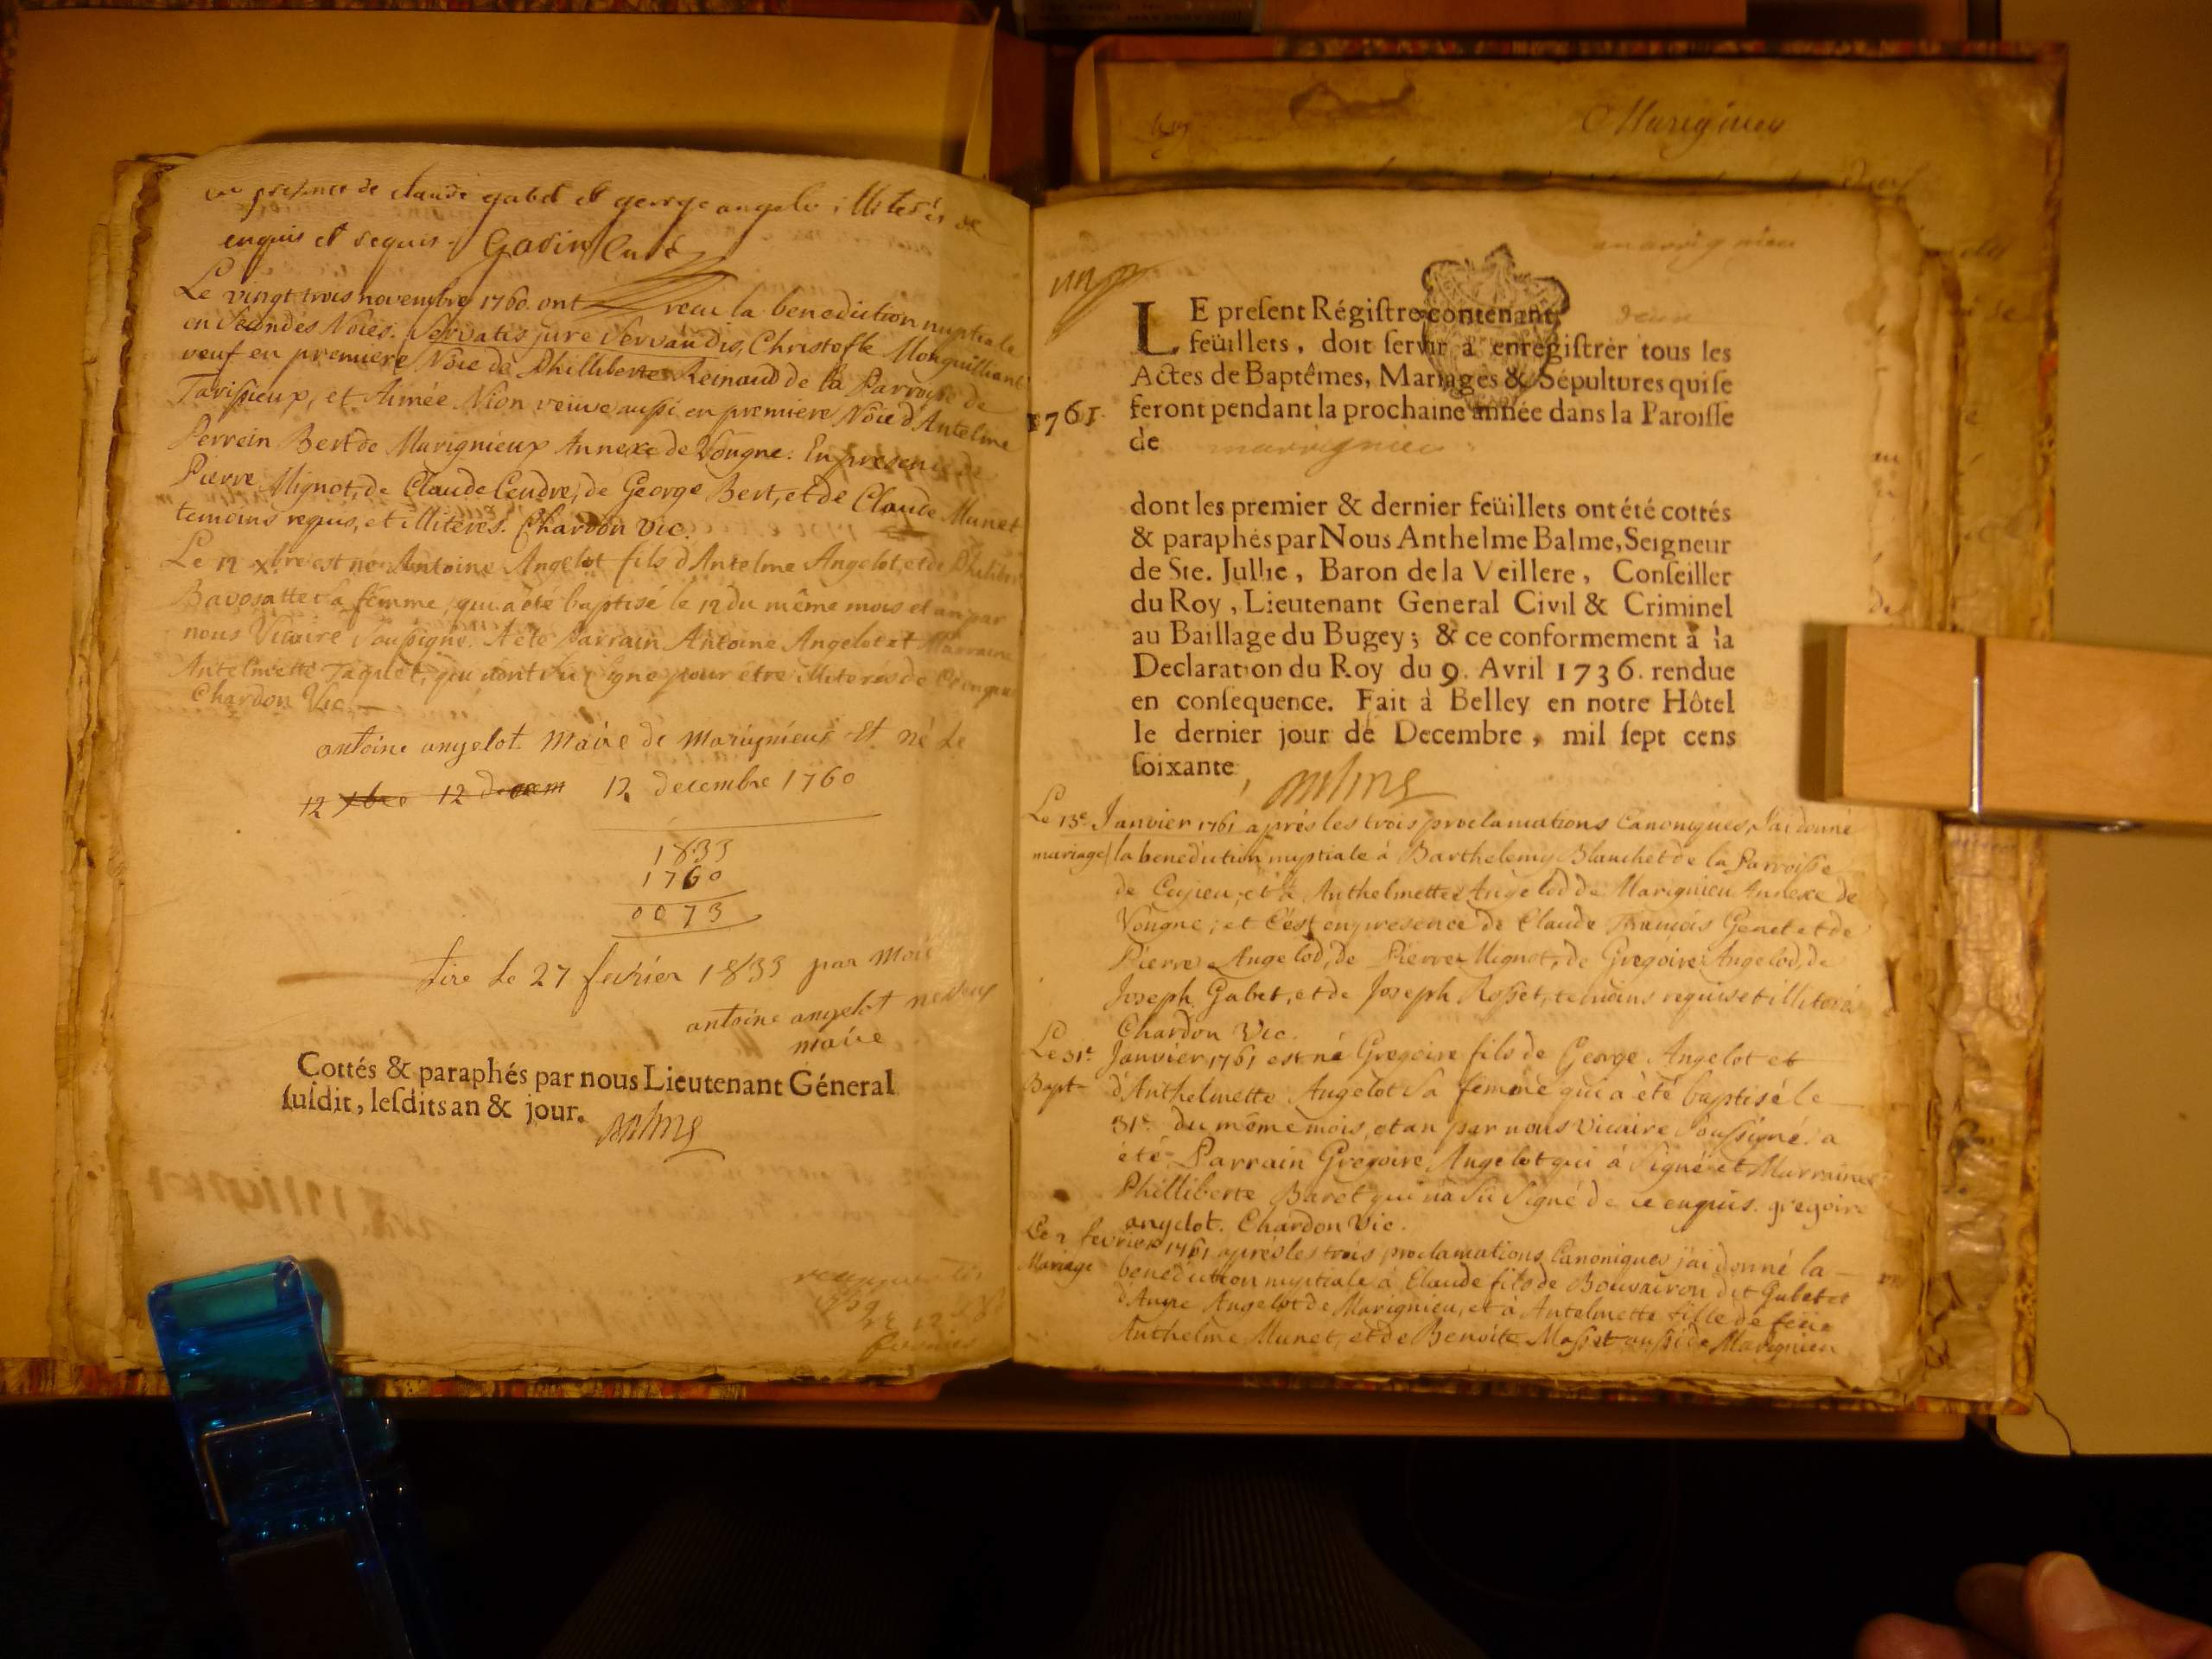 en presence de claude gabet et george angelo illiterés de
enquis et requis. Gavin Curé
Le vingt trois novembre 1760. ont recu la benediction nuptiale
en secondes Noces. servatis jure servandis, Christofle Monguilliant
veuf en premiere Nôce de Philliberte Reinaud de la Parroisse de
et Aimée Nion veüve aussi en premiere Nôce d'Antelme
Perrein Bert de Marignieux Annexe de Vongne. En presence de
Pierre Mignot, de Claude Cendre, de George Bert, et de Claude Munet
temoins requis, et illiterés. Chardon Vic.
Le 12 xbre est né Antoine Angelot fils d'Antelme Angelot, et de
sa femme, qui a été baptisé le 12 du même mois et an par
nous Vicaire soussigné. A été Parrain Antoine Angelot et Marraine
Antelmette Taquet, qui n'ont sû signé pour être illiterés de
Chardon Vic.
antoine angelot maire de marignieux Et né Le
12 xbre 12 decem 12 decembre 1760
1833
1760
0073
tire Le 27 fevrier 1833 par moi
antoine angelot neveux
maire
Cottés & paraphés par nous Lieutenant Géneral
susdit, lesdits an & jour.
Marignieu
un
LE present Régistre contenant deux
feüillets, doit servir à enregistrer tous les
Actes de Baptêmes, Mariages & Sépultures qui se
1761 feront pendant la prochaine année dans la Paroisse
de marrignieu
dont les premier & dernier feüillets ont été cottés
& paraphés par Nous Anthelme Balme, Seigneur
de Ste. Jullie, Baron de la Veillere, Conseiller
du Roy, Lieutenant General Civil & Criminel
au Baillage du Bugey; & ce conformement à la
Declaration du Roy du 9. Avril 1736. rendue
en consequence. Fait à Belley en notre Hôtel
le dernier jour de Decembre, mil sept cens
soixante
Le 13e Janvier 1761 après les trois proclamations Canoniques, J'ai donné
mariage la benediction nuptiale à Barthelemy Blanchet de la Parroisse
de Cuzieu, et à Anthelmette Angelod de Marignieu Annexe de
Vongne; et c'est en presence de Claude François Genet et de
Pierre Angelod, de Pierre Mignot, de Gregoire Angelod, de
Joseph Gabet, et de Joseph Rosset, temoins requis et illiterés
Chardon Vic.
Le 31e Janvier 1761 est né Gregoire fils de George Angelot et
Bapt d'Anthelmette Angelot sa femme qui a été baptisé le
31e du même mois, et an par nous Vicaire soussigné. a
été Parrain Gregoire Angelot qui à signé et Marraine
Philliberte Baret qui n'a sü signé de ce enquis. gregoire
angelot. Chardon Vic.
Le 2 fevrier 1761 après les trois proclamations Canoniques j'ai donné la
Mariage benediction nuptiale à Claude fils de Bouvairon dit Gabet et
Angelot de Marignieu, et a Antelmette fille de feüe
Anthelme Munet, et de Benoite Masset aussi de Marignieu